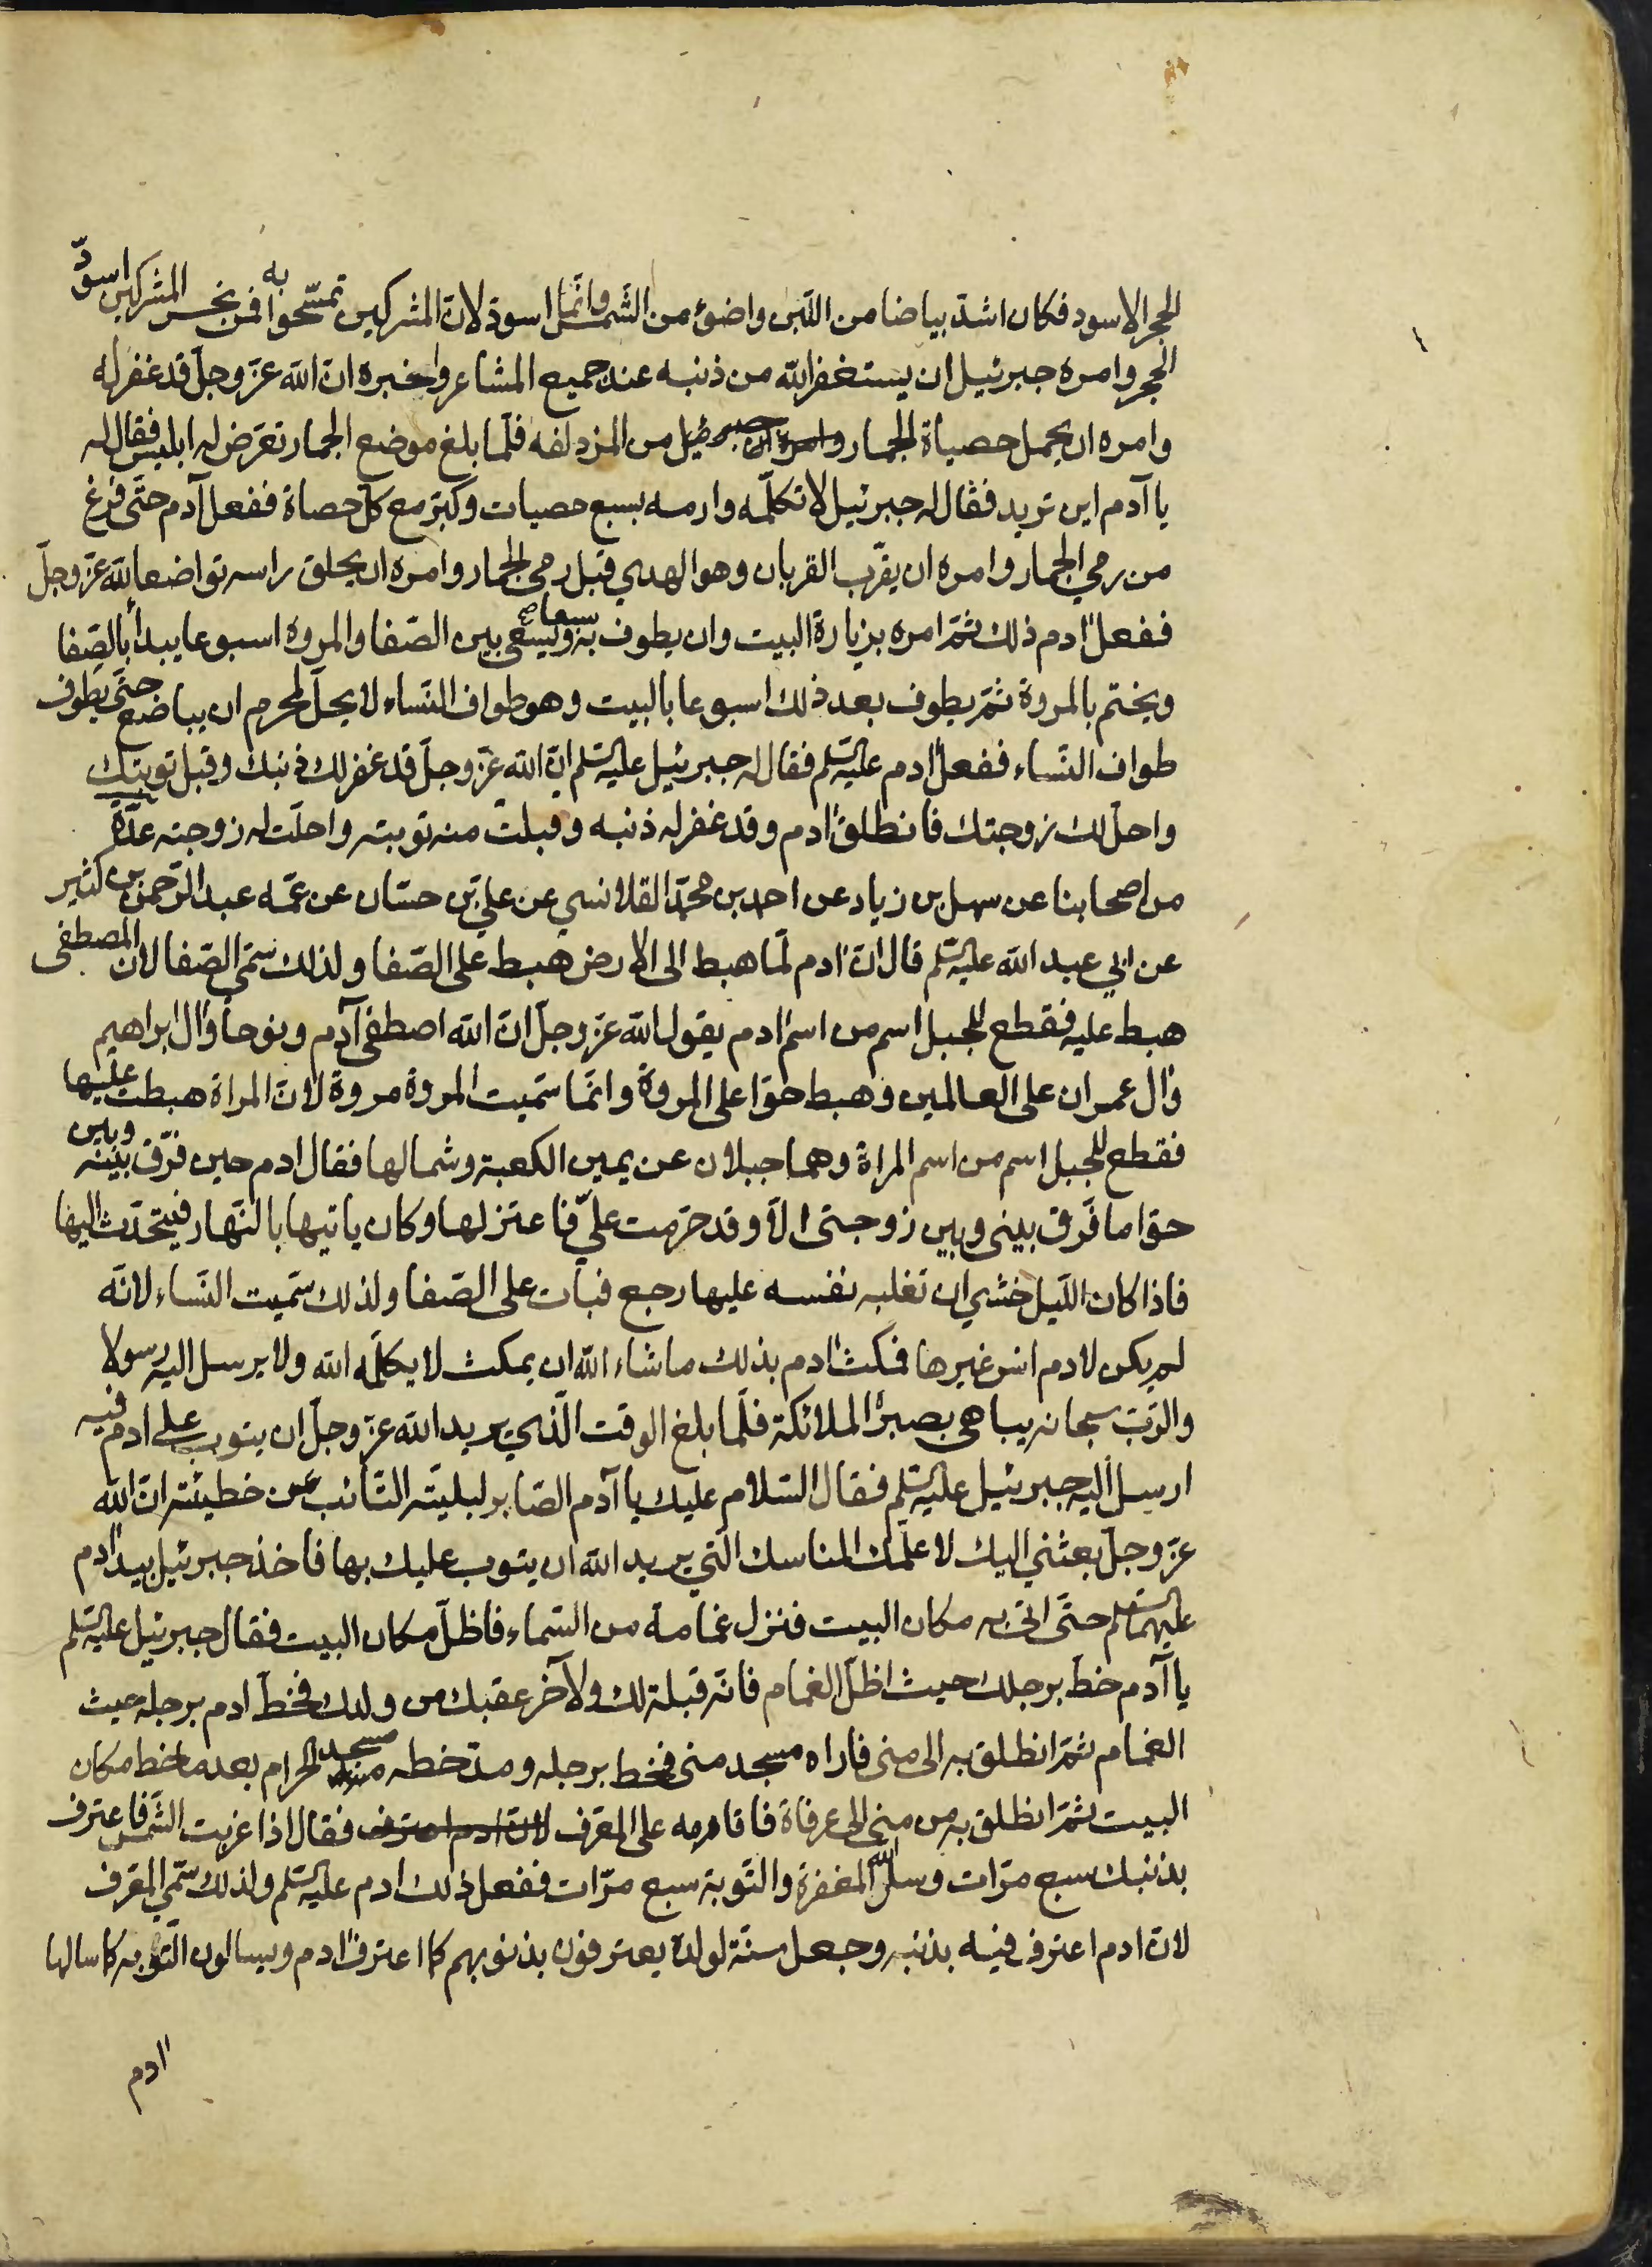 الحجر الاسود فكان اشدّ بياضا من اللّبن واضوئ من الشّمس وانّما اسودّ لانّ المشركين تمسّحوا به فمن نجس المشركين اسودّ
الحجر وامره جبرئيل ان يستغفر الله من ذنبه عند جميع المشاعر واخبره انّ الله عزّ وجلّ قد غفر له
وامره ان يحمل حصياة الجمار من المزدلفه فلمّا بلغ موضع الجمار تعرّض له ابليس فقال له
يا آدم اين تريد فقال له جبرئيل لا تكلّمه وارمه بسبع حصيات وكبّر مع كلّ حصاة ففعل آدم حتّى فرغ
من رمي الجمار وامره ان يقرّب القربان وهو الهدي قبل رمي الجمار وامره ان يحلق راسه تواضعا لله عزّ وجلّ
ففعل ادم ذلك ثمّ امره بزيارة البيت وان يطوف به سبعا ويسعى بين الصّفا والمروه اسبوعا يبدأ بالصّفا
ويختم بالمروة ثمّ يطوف بعد ذلك اسبوعا بالبيت وهو طواف النّساء لا يحلّ لمحرم ان يباضع حتّى يطوف
طواف النّساء ففعل ادم عليه السّلم فقال له جبرئيل عليه السّلم انّ الله عزّ وجلّ قد غفر لك ذنبك وقبل توبتك
واحلّ لك زوجتك فانطلق ادم وقد غفر له ذنبه وقبلت منه توبته واحلّت له زوجته عدّة
من اصحابنا عن سهل بن زياد عن احمد بن محمّد القلانسي عن عليّ بن حسّان عن عمّه عبد الرّحمن بن كثير
عن ابي عبد الله عليه السّلم قال انّ ادم لمّا هبط الى الارض هبط على الصّفا ولذلك سمّي الصّفا لانّ المصطفى
هبط عليه فقطع للجبل اسم من اسم ادم يقول الله عزّ وجلّ انّ الله اصطفى آدم ونوحا وال ابراهيم
وال عمران على العالمين وهبط حوّا على المروة وانّما سمّيت المروة مروة لانّ المراة هبطت عليها
فقطع للجبل اسم من اسم المراة وهما جبلان عن يمين الكعبة وشمالها فقال ادم حين فرّق بينه وبين
حوّا ما فرّق بيني وبين زوجتي الّا وقد حرّمت عليّ فاعتزلها وكان ياتيها بالنّهار فيتحدّث اليها
فاذا كان اللّيل خشي ان تغلبه نفسه عليها رجع فبات على الصّفا ولذلك سمّيت النّساء لانّه
لم يكن لادم انس غيرها فمكث ادم بذلك ما شاء الله ان يمكث لا يكلّمه الله ولا يرسل اليه رسولا
والرّبّ سبحانه يباهي بصبره الملائكة فلمّا بلغ الوقت الّذي يريد الله عزّ وجلّ ان يتوب على ادم فيه
ارسل اليه جبرئيل عليه السّلم فقال السّلام عليك يا آدم الصّابر لبليّته التّائب عن خطيئته انّ الله
عزّ وجلّ بعثني اليك لاعلّمك المناسك الّتي يريد الله ان يتوب عليك بها فاخذ جبرئيل بيد ادم
عليهما السّلم حتّى اتى به مكان البيت فنزل غمامة من السّماء فاظلّ مكان البيت فقال جبرئيل عليه السّلم
يا آدم خطّ برجلك حيث اظلّ الغمام فانّه قبلة لك ولآخر عقبك من ولدك فخطّ ادم برجله حيث
الغمام ثمّ انطلق به الى منى فاراه مسجد منى فخط برجله ومدّ خطه مسجد الحرام بعد ما خط مكان
البيت ثمّ انطلق به من منى الى عرفاة فاقامه على المعرّف لانّ ادم اعترف فقال اذا غربت الشّمس فاعترف
بذنبك سبع مرّات وسل الله المغفرة والتّوبة سبع مرّات ففعل ذلك ادم عليه السّلم ولذلك سمّي المعرّف
لانّ ادم اعترف فيه بذنبه وجعل سنّة لولده يعترفون بذنوبهم كما اعترف ادم ويسالون التّوبه كما سالها
ادم